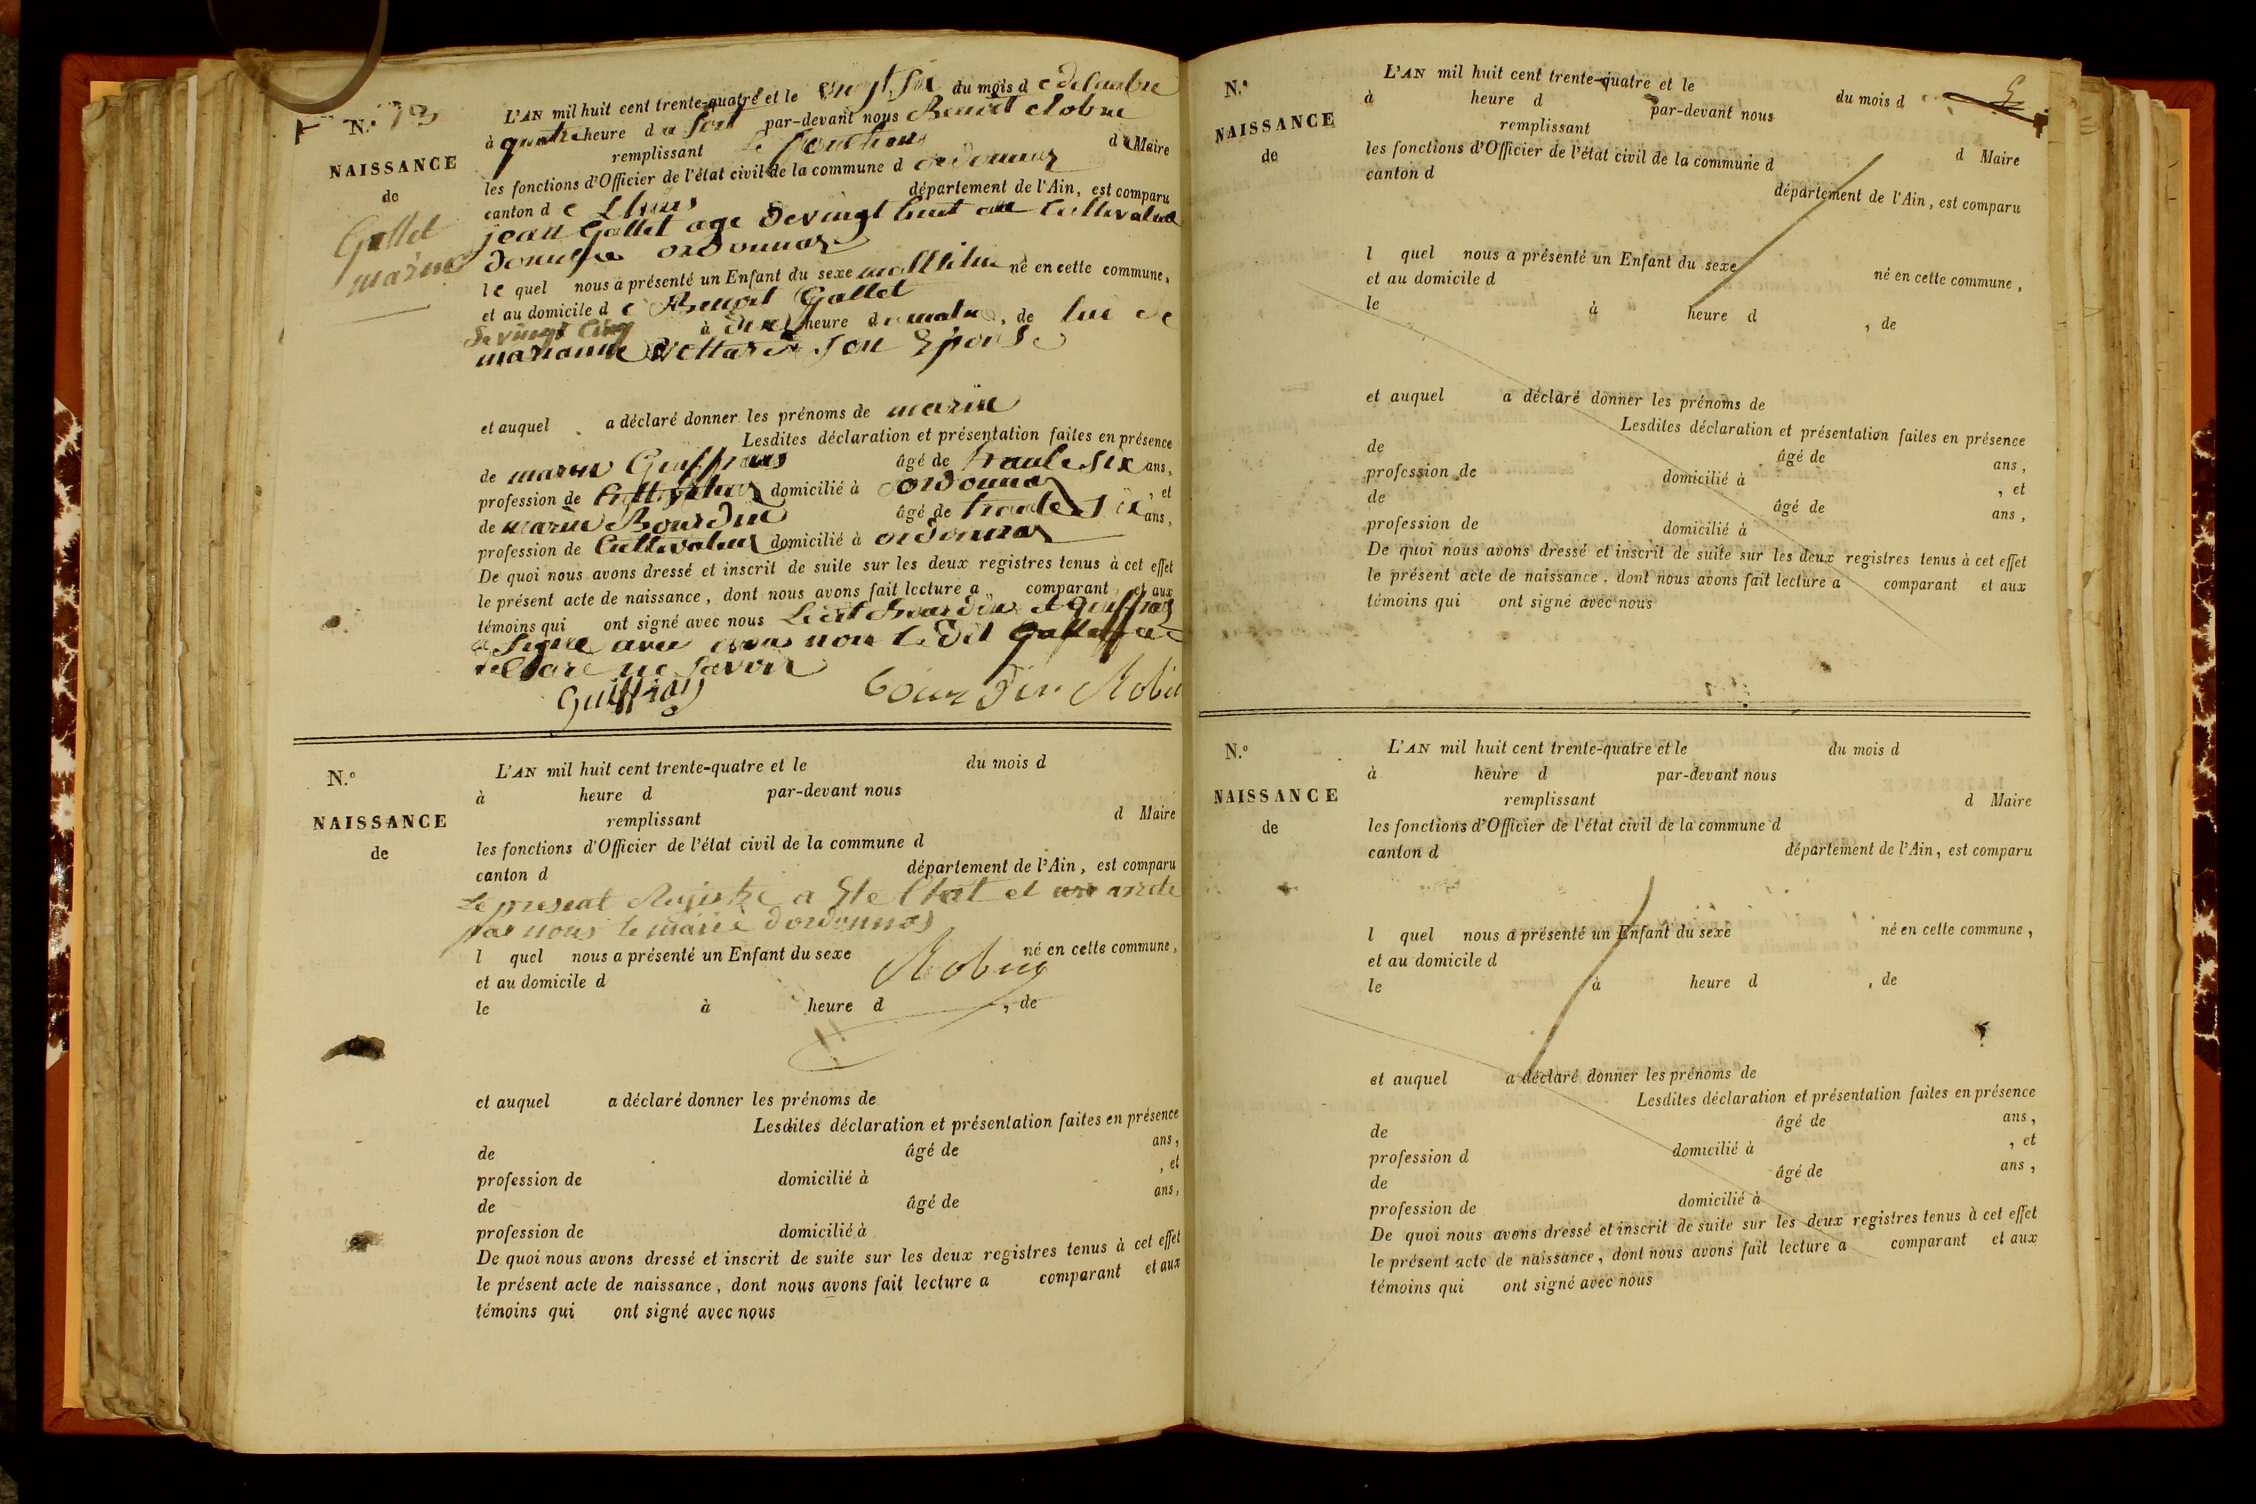 N.° 13
NAISSANCE
de
Gallet
marin
L'AN mil huit cent trente-quatre et le vingt six du mois d e desambre
à quatre heure d u soir par-devant nous Benoit Robin
remplissant le fonctions d u Maire
les fonctions d'Officier de l'état civil de la commune d ordonnas
canton d e Lhuis département de l'Ain, est comparu
jean Gallet age de vingt huit ans Cultivateur
domicilie ordonnas
l e quel nous a présenté un Enfant du sexe né en cette commune,
et au domicile d e Benoit Gallet
de vingt cinq à dix heure du matin, de lui de
marianne son Epouse
et auquel a déclaré donner les prénoms de marin
Lesdites déclaration et présentation faites en présence
de marin Guiffray âgé de trante six ans,
profession de Cultivateur domicilié à ordonnas, et
de marin Bourdin âgé de trante six ans,
profession de Cultivateur domicilié à ordonnas
De quoi nous avons dressé et inscrit de suite sur les deux registres tenus à cet effet
le présent acte de naissance, dont nous avons fait lecture a comparant et aux
témoins qui ont signé avec nous Ledit Bourdin et Guiffray
a signe avec nous non le dit Gallet
declare ne savoir
Guiffray Bourdin Robin
N.°
NAISSANCE
de
L'AN mil huit cent trente-quatre et le du mois d
à heure d par-devant nous
remplissant d Maire
les fonctions d'Officier de l'état civil de la commune d
canton d département de l'Ain, est comparu
Le present Registre a Ete Clot et arrete
par nous le maire d'ordonnas
l quel nous a présenté un Enfant du sexe né en cette commune,
Robin
et au domicile d
le à heure d , de
et auquel a déclaré donner les prénoms de
Lesdites déclaration et présentation faites en présence
de âgé de ans,
profession de domicilié à , et
de âgé de ans,
profession de domicilié à
De quoi nous avons dressé et inscrit de suite sur les deux registres tenus à cet effet
le présent acte de naissance, dont nous avons fait lecture a comparant et aux
témoins qui ont signé avec nous
N.°
NAISSANCE
de
L'AN mil huit cent trente-quatre et le du mois d
à heure d par-devant nous
remplissant d Maire
les fonctions d'Officier de l'état civil de la commune d
canton d département de l'Ain, est comparu
l quel nous a présenté un Enfant du sexe né en cette commune,
et au domicile d
le à heure d , de
et auquel a déclaré donner les prénoms de
Lesdites déclaration et présentation faites en présence
de âgé de ans,
profession de domicilié à , et
de âgé de ans,
profession de domicilié à
De quoi nous avons dressé et inscrit de suite sur les deux registres tenus à cet effet
le présent acte de naissance, dont nous avons fait lecture a comparant et aux
témoins qui ont signé avec nous
N.°
NAISSANCE
de
L'AN mil huit cent trente-quatre et le du mois d
à heure d par-devant nous
remplissant d Maire
les fonctions d'Officier de l'état civil de la commune d
canton d département de l'Ain, est comparu
l quel nous a présenté un Enfant du sexe né en cette commune,
et au domicile d
le à heure d , de
et auquel a déclaré donner les prénoms de
Lesdites déclaration et présentation faites en présence
de âgé de ans,
profession d domicilié à , et
de âgé de ans,
profession de domicilié à
De quoi nous avons dressé et inscrit de suite sur les deux registres tenus à cet effet
le présent acte de naissance, dont nous avons fait lecture a comparant et aux
témoins qui ont signé avec nous